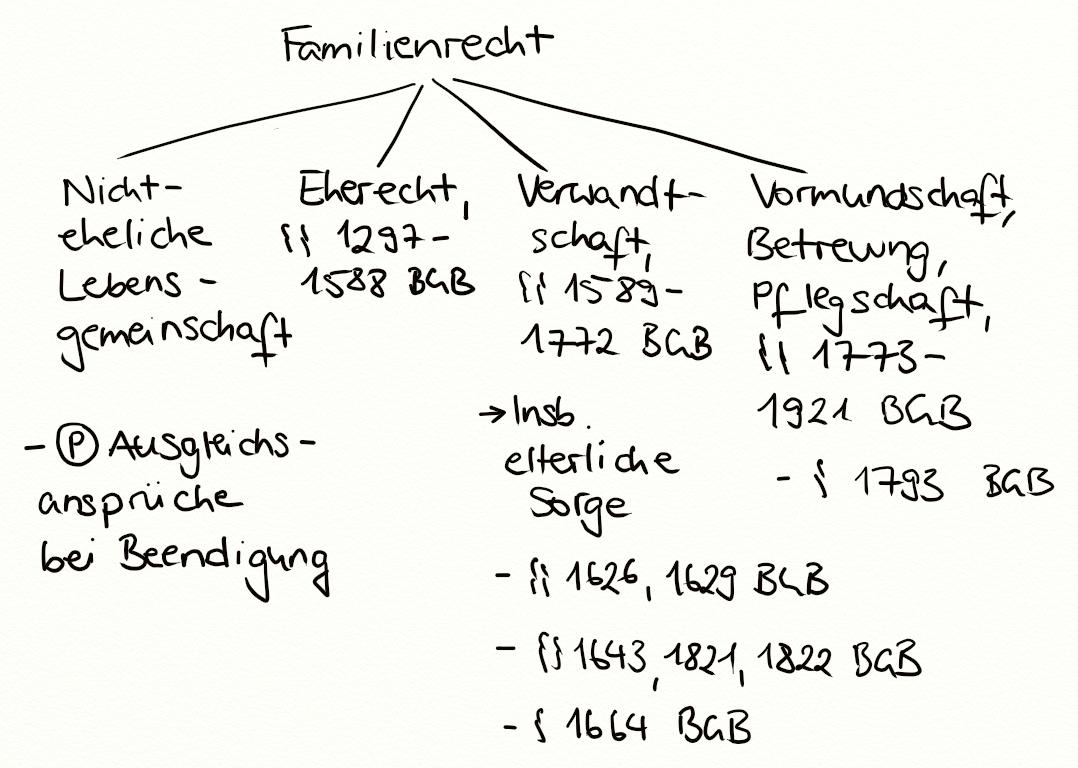 Familienrecht
Nicht-
eheliche
Lebens-
gemeinschaft
- Ⓟ Ausgleichs-
ansprüche
bei Beendigung
Eherecht,
§§ 1297-
1588 BGB
Verwandt-
schaft,
§§ 1589-
1772 BGB
→ Insb.
elterliche
Sorge
- §§ 1626, 1629 BGB
- §§ 1643, 1821, 1822 BGB
- § 1664 BGB
Vormundschaft,
Betreuung,
Pflegschaft,
§§ 1773-
1921 BGB
- § 1793 BGB